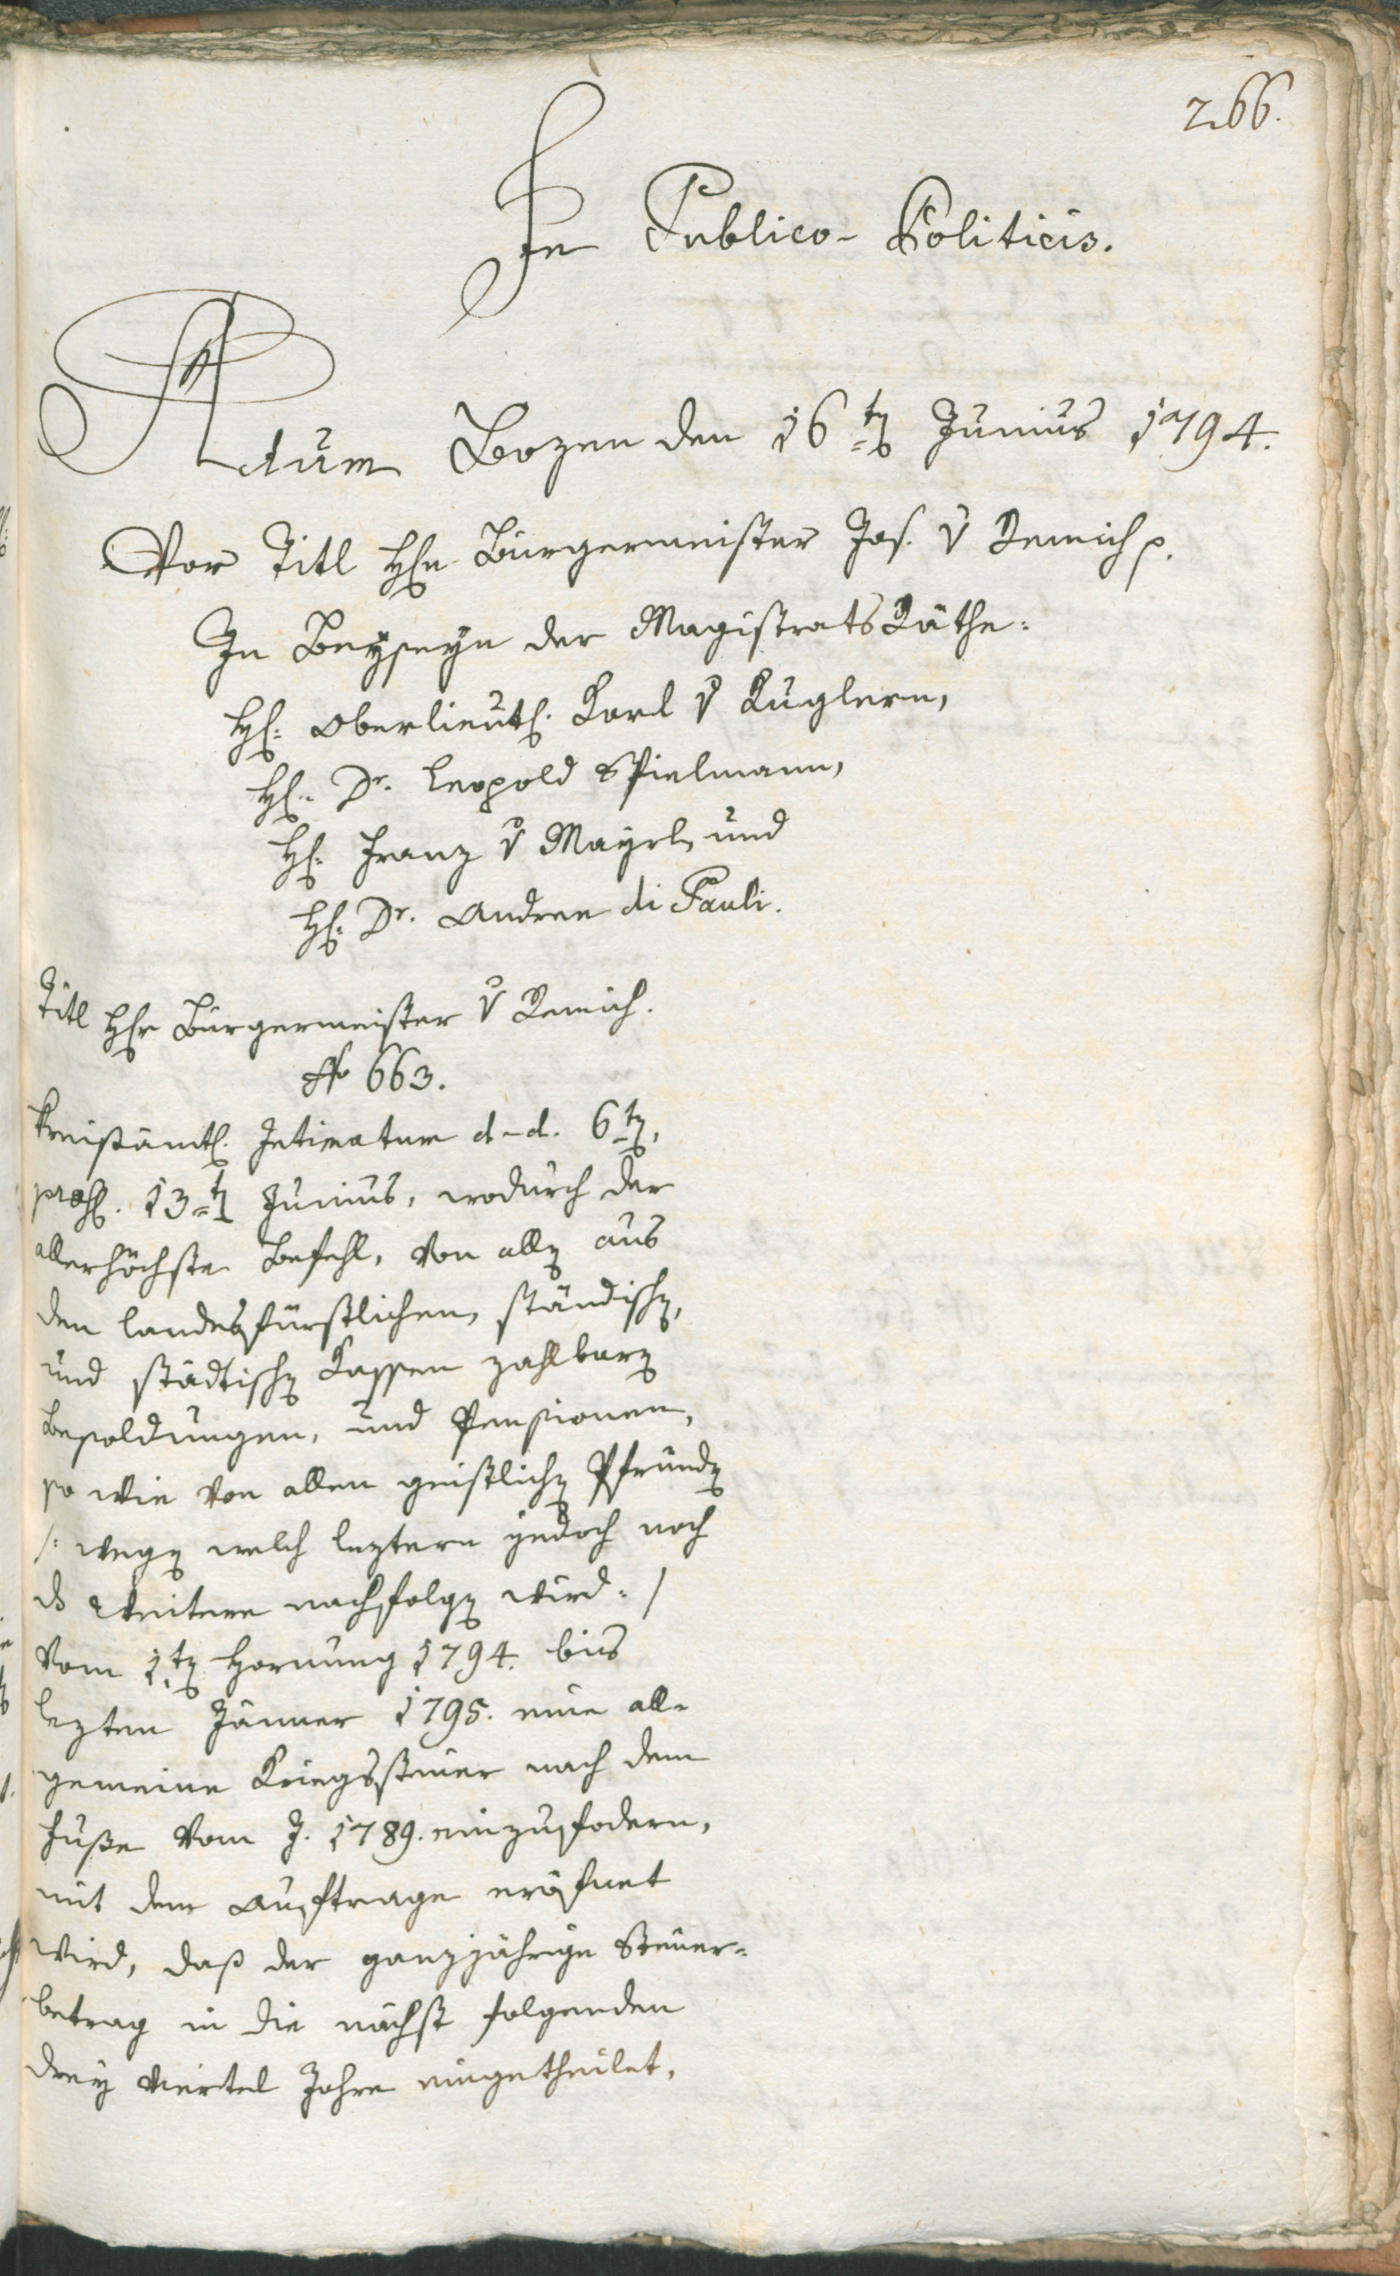 266.
In Publico-Politicis.
Actum Bozen den 16ten Junius 1794.
Vor Titl Hℓn Bürgermeister Jos. v Remich p.
In Beyseyn der Magistrats Räthe:
Hℓ: Oberlieutℓ. Karl v Kuglern,
Hℓ: Dr. Leopold Spielmann,
Hℓ: Franz v Mayrl, und
Hℓ: Dr. Andree di Pauli.
Titl Hℓr Bürgermeister v Remich.
No 663.
Kreisämtl. Intimatum d-d. 6ten,
præs. 13ten Junius, wodurch der
allerhöchste Befehl, von allen aus
den landesfürstlichen, ständischen,
und städtischen Kassen zahlbaren
Besoldungen, und Pensionen,
so wie von allen geistlichen Pfründen
/: wegen welch leztern jedoch noch
ds Weitere nachfolgen wird :/
vom 1ten Hornung 1794. bis
lezten Jänner 1795. eine all-
gemeine Kriegssteuer nach dem
Fuße vom J. 1789. einzufodern,
mit dem Auftrage eröfnet
wird, daß der ganzjährige Steuer-
betrag in die nächst folgenden
drey viertel Jahre eingetheilet,